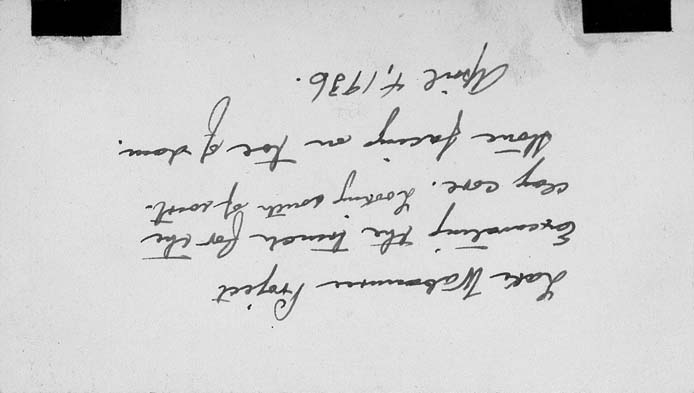 Lake Wabaunsee Project
Excavating the trench for the
clay core. Looking south of west.
Stone facing on toe of dam.
April 4, 1936.